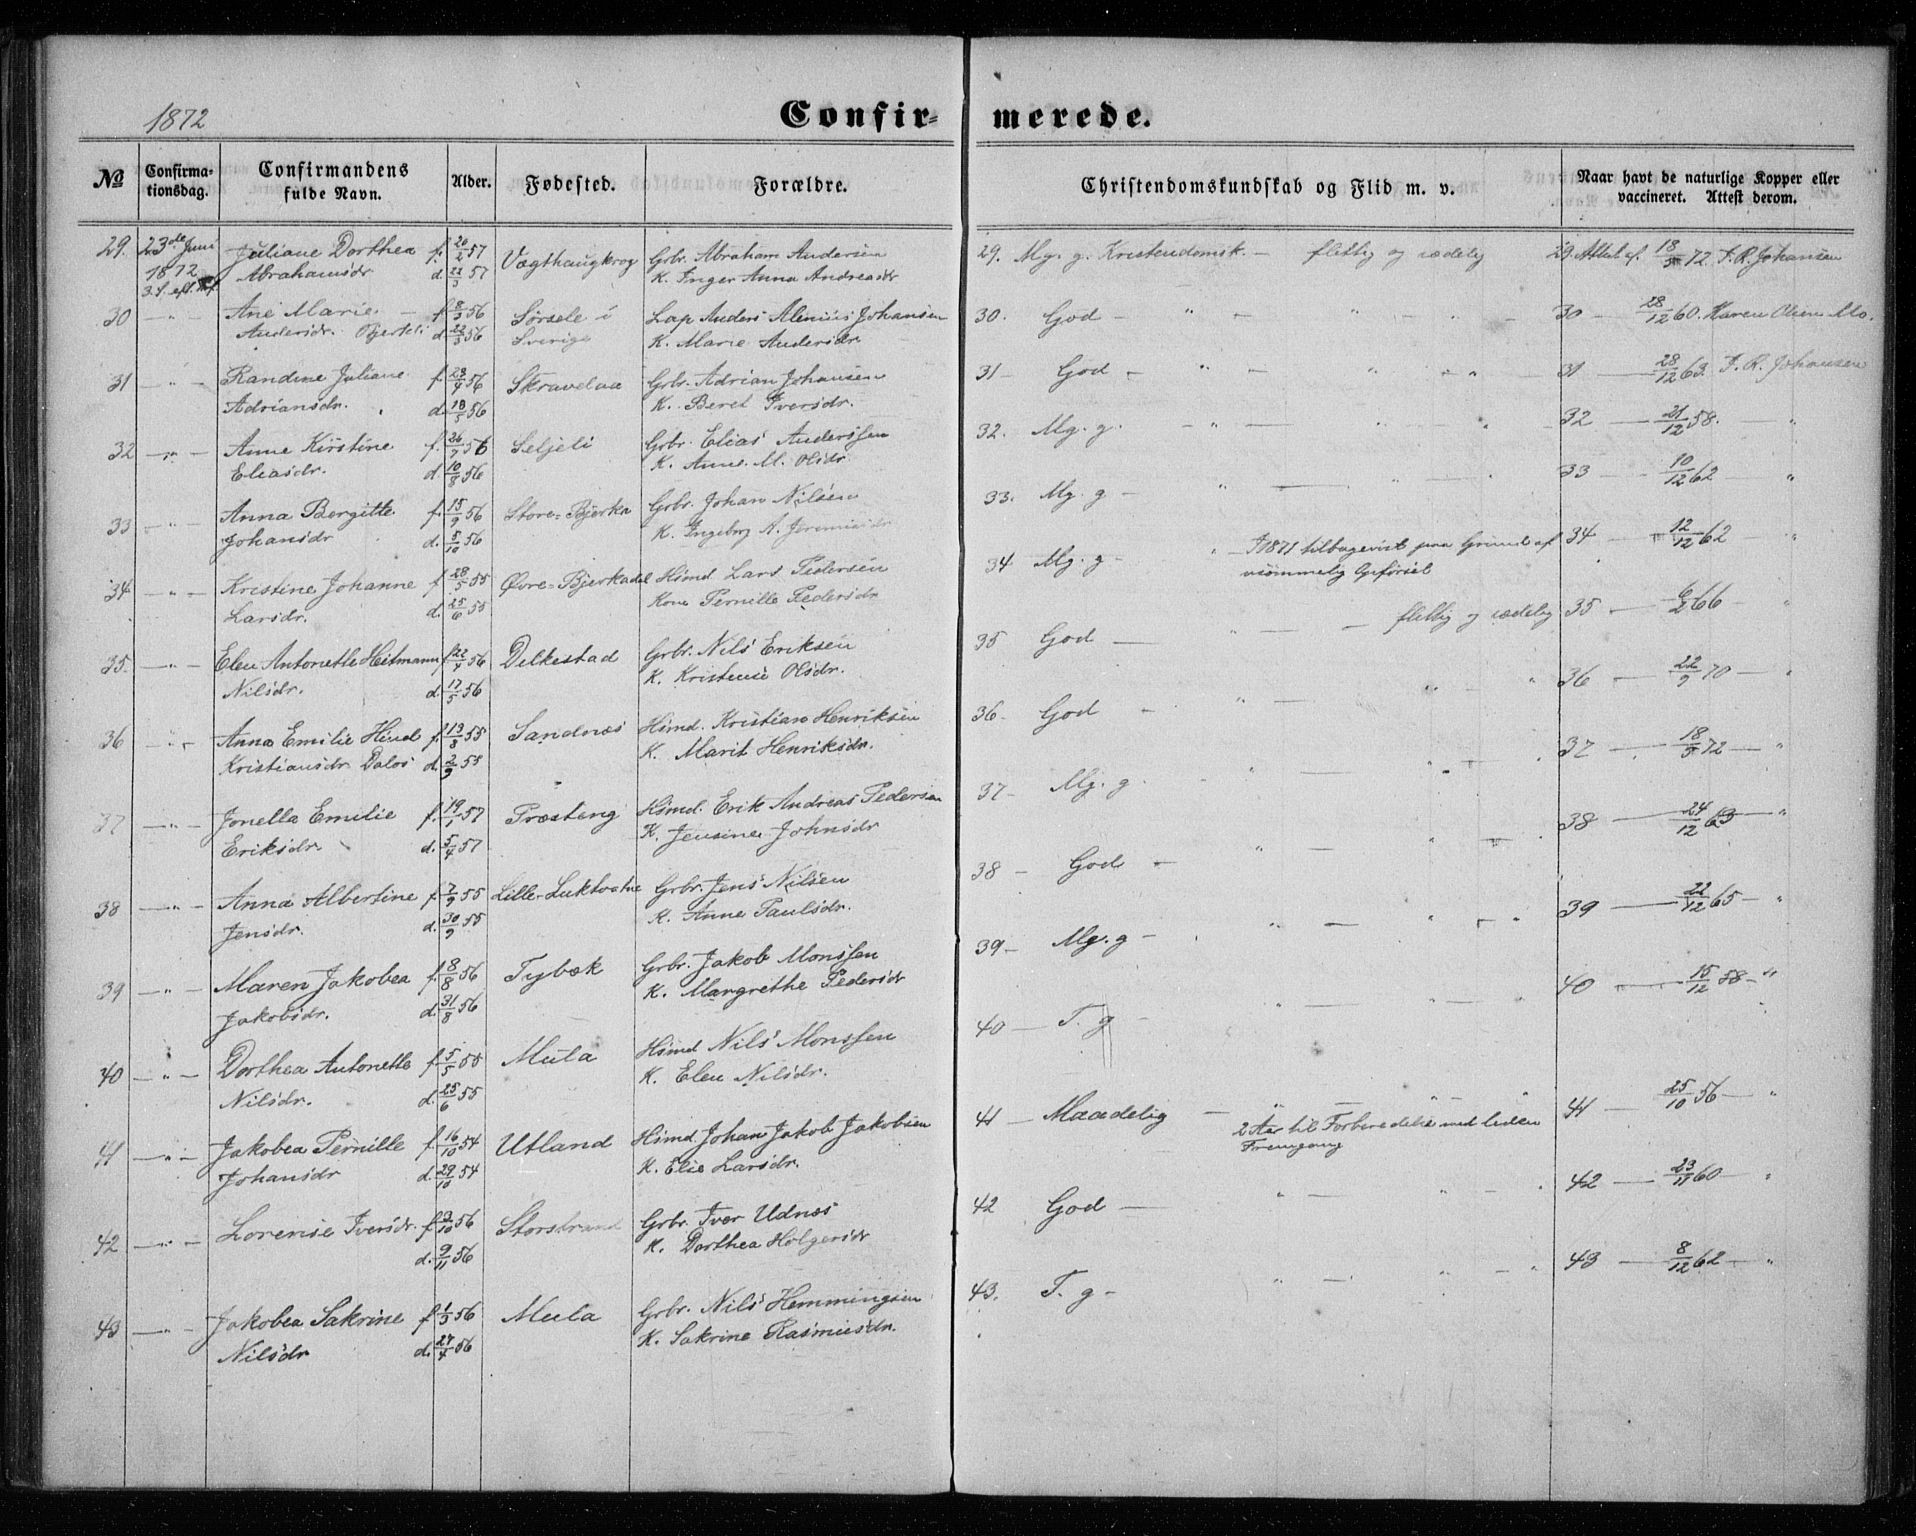 1872
Confir-
merede.
No
Confirma-
tionsdag.
Confirmandens
fulde Navn.
Alder.
Fødested.
Forældre.
Christendomskundskab og Flid m. v.
Naar havt de naturlige Kopper eller
vaccineret. Attest derom.
29. 23de Juni Juliane Dorthea f. 20/2 57 Vægthaugkrog Grbr. Abraham Andersen
1872 Abrahamsdr d. 22/3 57 K. Inger Anna Andreasdr
3 S. eft. Tref.
30 - " - Ane Marie - f 8/3 56 Sørsele i Lap Anders Alenius Johansen
Andersdr. Bjerkli d. 22/3 56 Sverige K. Marie Andersdr
31 - " - Randine Juliane f. 23/4 56 Skravlaa Grbr. Adrian Johansen
Adriansdr. d. 18/5 56 K. Beret Iversdr.
32 - " - Anne Kirstine f. 26/7 56 Seljeli Grbr. Elias Anderssen
Eliasdr. d. 10/8 56 K. Anne M. Olsdr.
33 - " - Anna Bergitte f. 15/9 56 Store-Bjerka Grbr. Johan Nilsen
Johansdr d. 5/10 56 K. Ingeborg A. Jeremiasdr
34 - " - Kristine Johanne f 28/5 55 Øvre-Bjerkadal Hsmd. Lars Pedersen
Larsdr. d. 25/6 55 Kone Pernille Pedersdr
35. - " - Elen Antonette Heitmann f 22/4 56 Delkestad Grbr. Nils Eriksen
Nilsdr. d. 17/5 56 K. Kristense Olsdr.
36 - " - Anna Emilie Hind f. 13/8 55 Sandnæs Hsmd. Kristian Henriksen
Kristiansdr Dalos d. 2/9 55 K. Marit Henriksdr.
37 - " - Jonella Emilie f. 19/1 57 Præsteng Hsmd. Erik Andreas Pedersen
Eriksdr d. 5/4 57 K. Jensine Johnsdr
38 - " - Anna Albertine f. 7/9 55 Lille-Luktvatne Grbr. Jens Nilsen
Jensdr. d. 30/9 55 K. Anne Paulsdr.
39 - " - Maren Jakobea f. 8/8 56 Tybæk Grbr. Jakob Monssen
Jakobsdr. d. 31/8 56 K. Margrethe Pedersdr
40 - " - Dorthea Antonette f. 5/5 55 Mula Hsmd Nils Monssen
Nilsdr. d. 25/6 55 K. Elen Nilsdr.
41 - " - Jakobea Pernille f. 16/10 54 Utland Hsmd. Johan Jakob Jakobsen
Johansdr d. 29/10 54 K. Elie Larsdr.
42 - " - Lorense Iversdr. f. 3/10 56 Storstrand Grbr. Iver Udnæs
d. 9/11 56 K. Dorthea Holgersdr
43 - " - Jakobea Sakrine f 1/3 56 Mula Grbr. Nils Hemmingsen
Nilsdr d. 27/4 56 K. Sakrine Rasmusdr.
29. Mg. g. Kristendomsk. - flittig og sædelig 29. Attest af 18/5 72 F. R. Johansen
30. God - " - " - " - " 30 - 28/12 60. Maren Olsen Mo.
31 - God - " - " - " 31 - 28/12 63. F. R. Johansen
32. Mg. g. - " - " " 32 - 21/12 58. "
33. Mg. g - " - " - " 33 - 10/12 62 "
34 Mg. g - " I 1871 tilbagevist paa Grund af 34 - 12/12 62 "
usømmelig Opførsel
35 God - " - flittig og sædelig 35 - 6/2 66 - "
36. God - " - " - " 36 - 22/9 70 - "
37 - Mg. g - " - " - " 37 - 18/5 72 - "
38 - God - " - " - " 38 - 24/12 63 - "
39 - Mg. g - " - " - " 39 - 22/12 65 - "
40 - T. g - " - " - " 40 - 15/12 58 - "
41 - Maadelig - " - " - " 41 - 25/10 56 - "
2 Aar til Forberedelse med liden
Fremgang
42 God - " - " - " 42 - 23/11 60 - "
43. T. g - " - " - " 43 - 8/12 62 - "